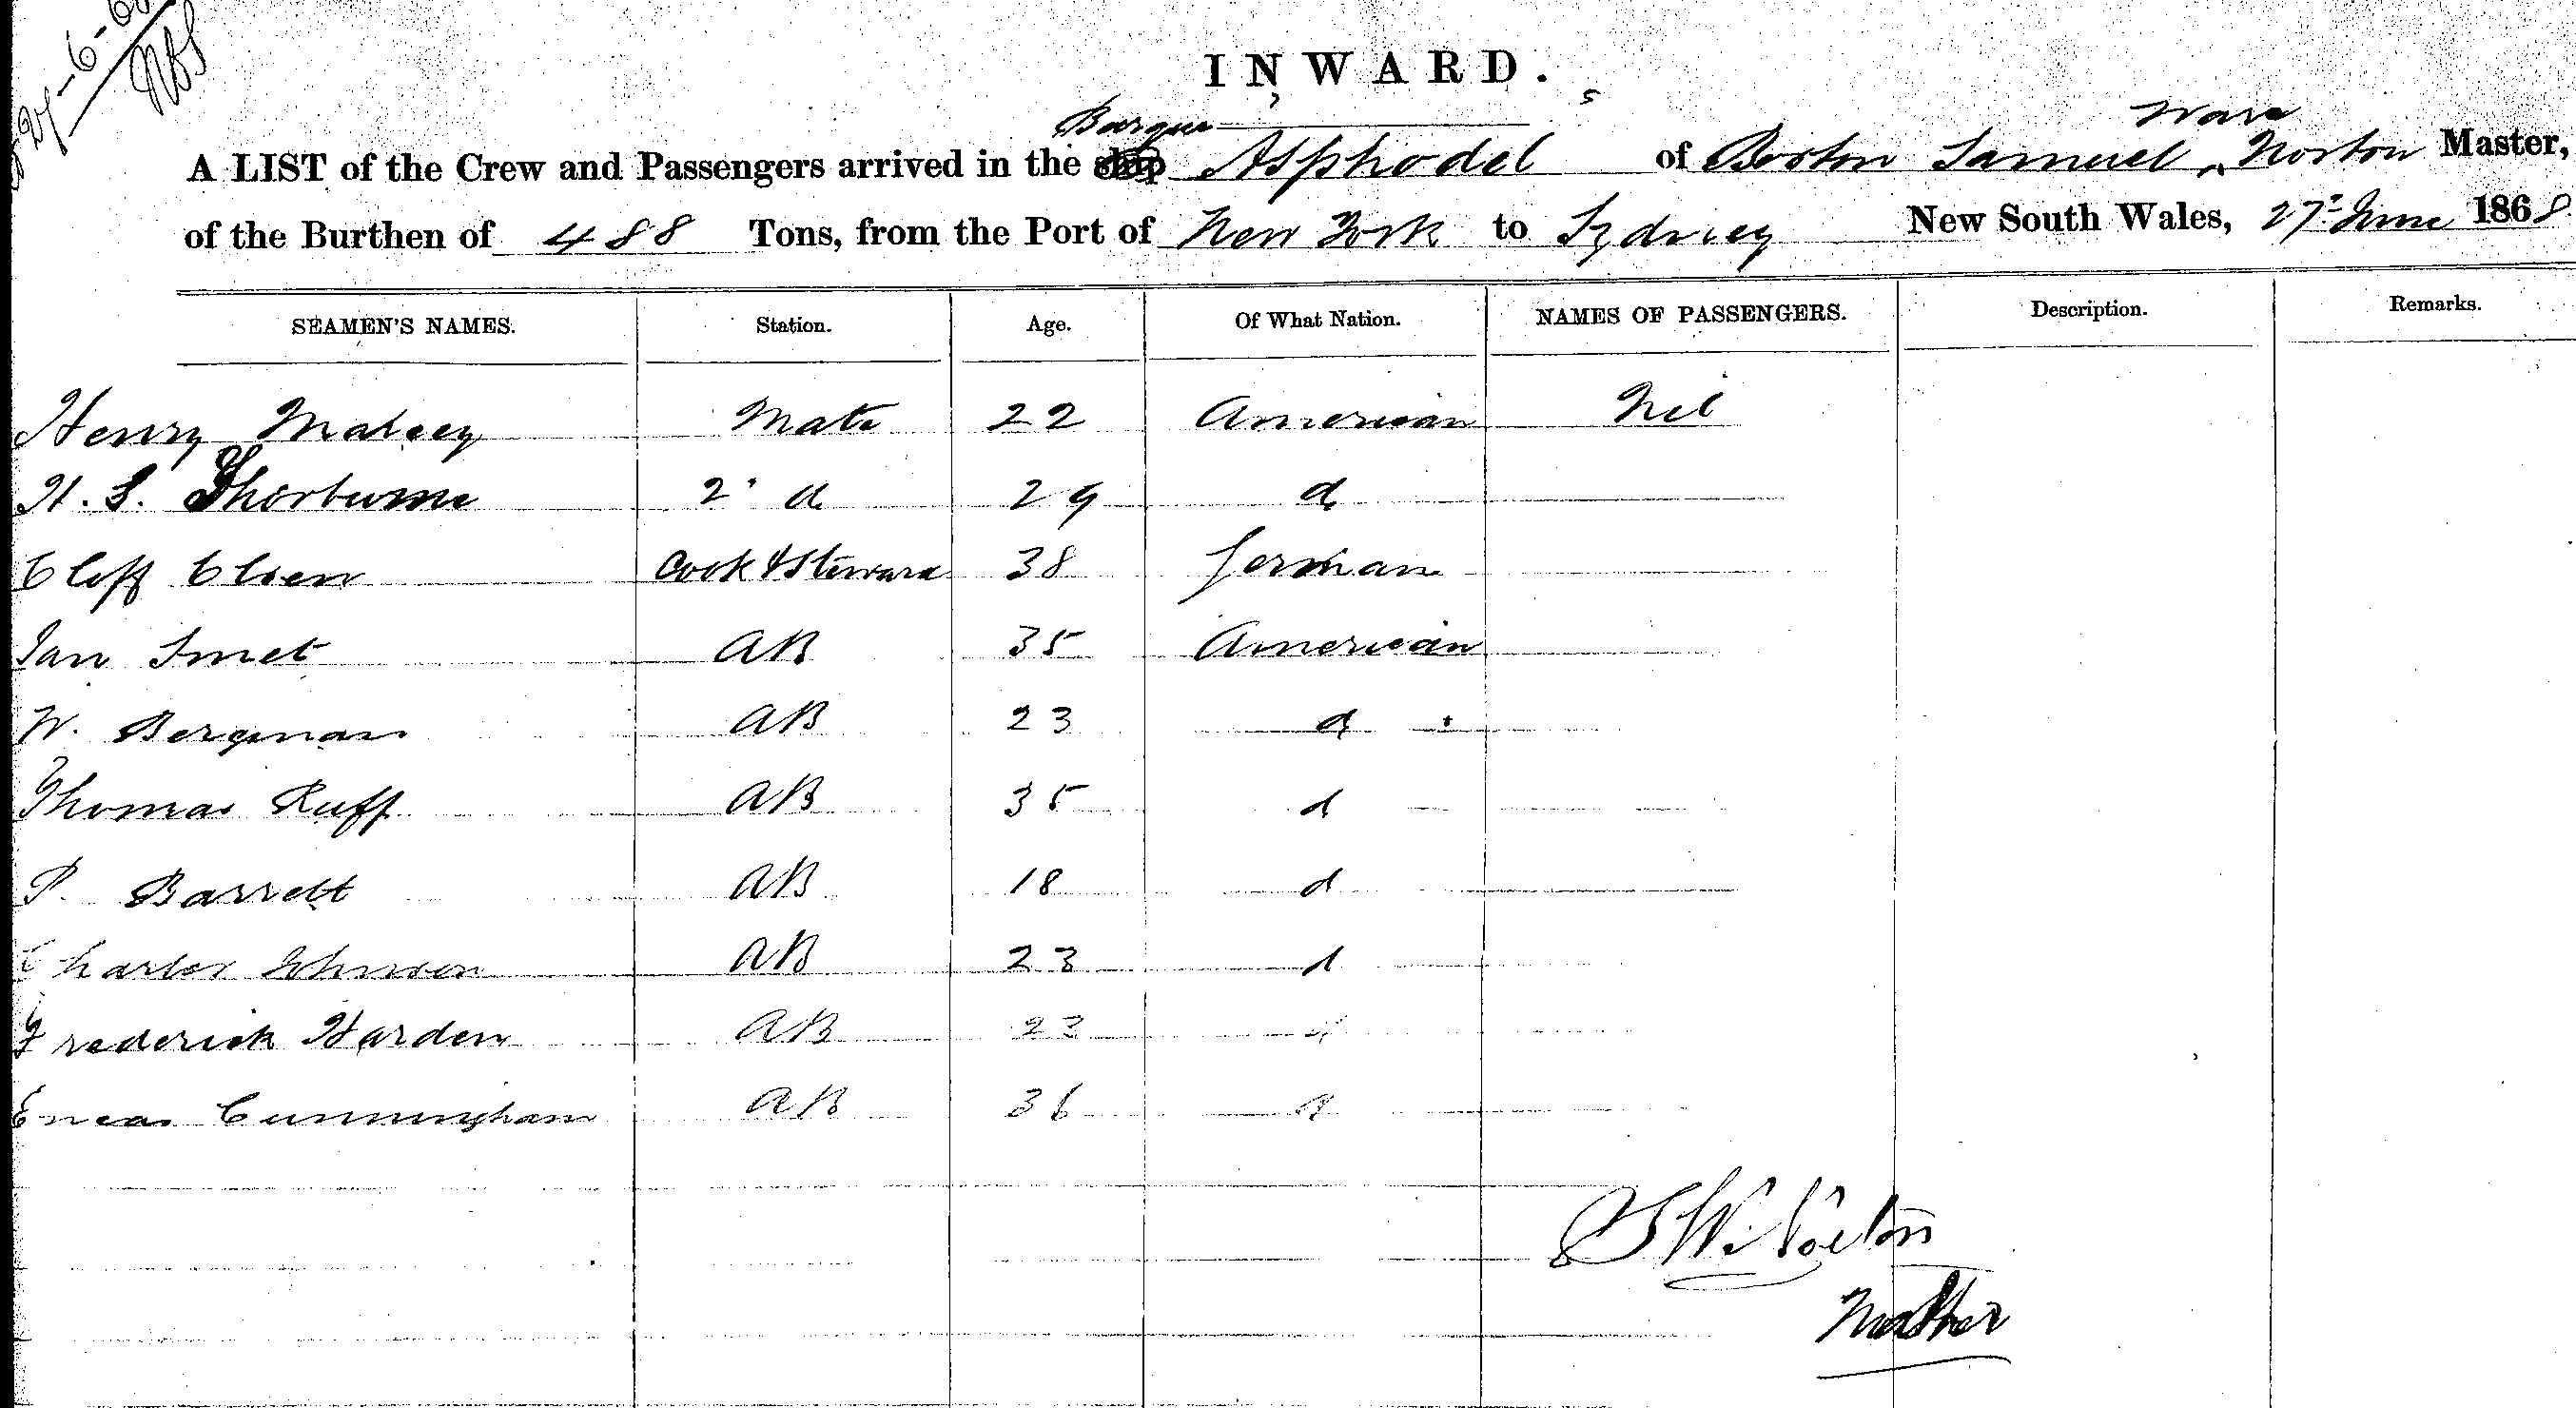 27-6-68
INWARD.
Barque Ware
A LIST of the Crew and Passengers arrived in the ship Asphodel of Boston Samuel ‸ Norton Master,
of the Burthen of 488 Tons, from the Port of New York to Sydney New South Wales, 27 June 1868
SEAMEN'S NAMES. Station. Age. Of What Nation. NAMES OF PASSENGERS. Description. Remarks.
Henry Mabey Mate 22 American Nil
H. S. Thorburne 2 d 29 d
Oloff Olsen Cook & Steward 38 German
Jan Smet AB 35 American
W. Bergman AB 23 d
Thomas Ruff AB 35 d
P. Barrett AB 18 d
Charles Johnson AB 23 d
Frederick Harden AB 23 d
Eneas Cunningham AB 36 d
S W. Norton
Master